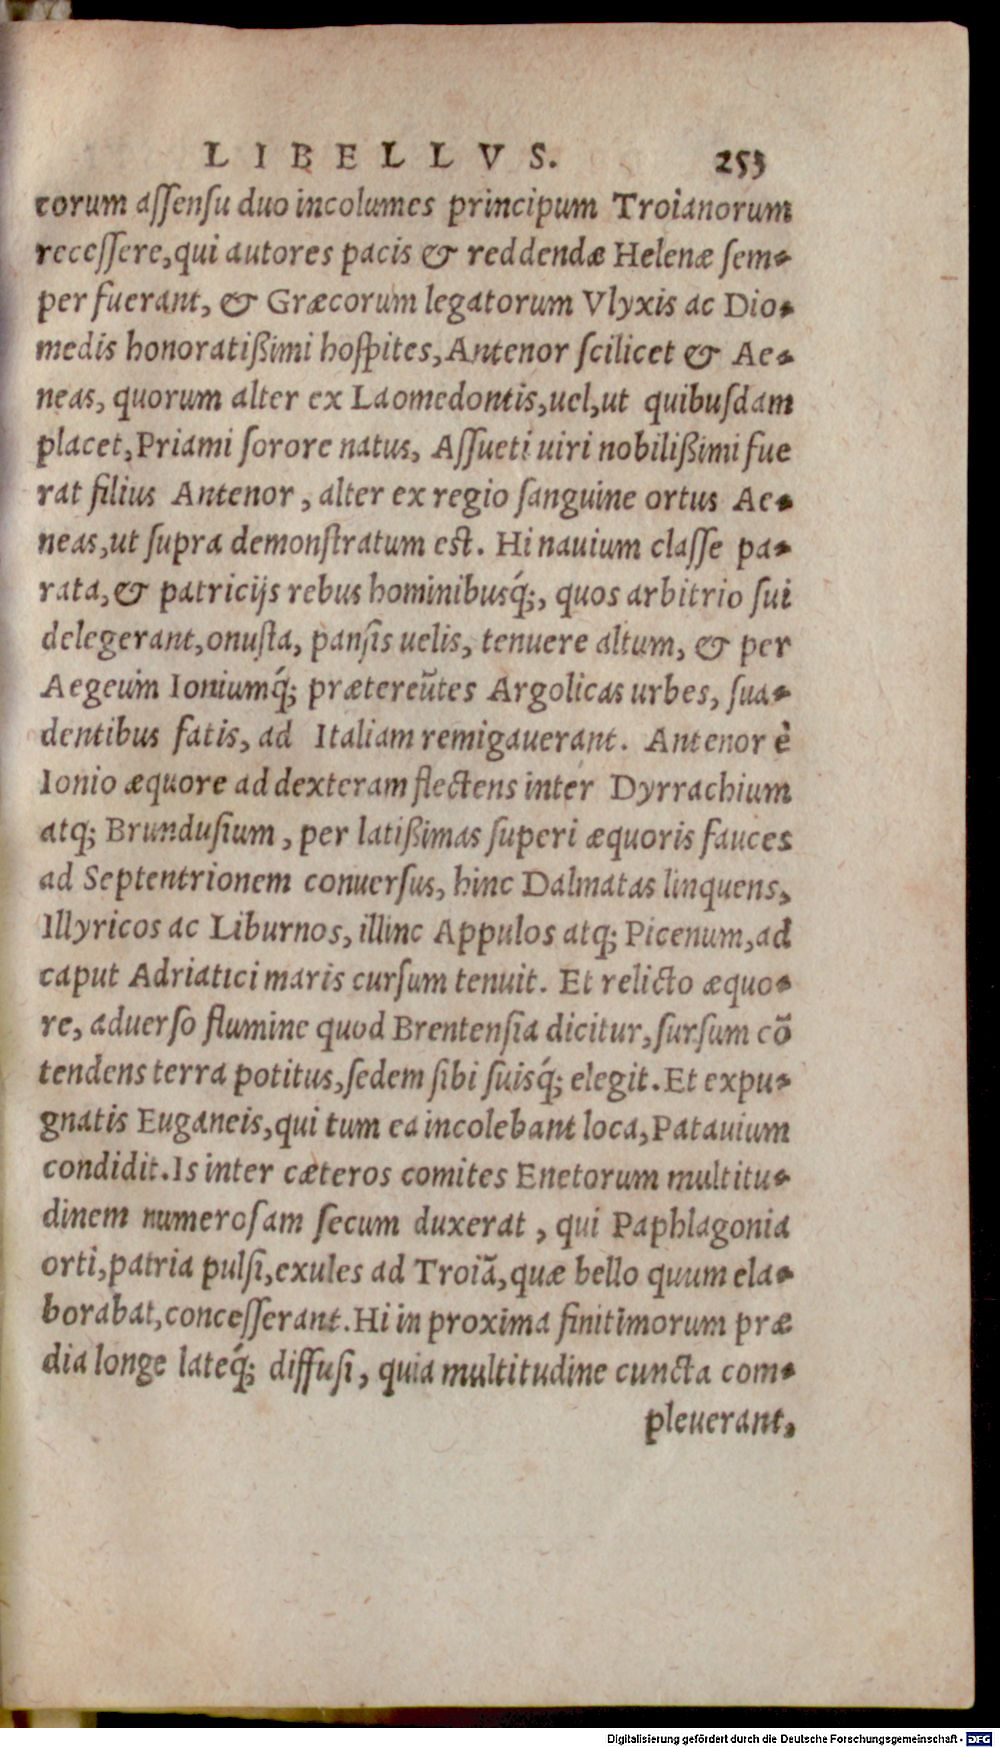 LIBELLVS. 253
torum assensu duo incolumes principum Troianorum
recessere, qui autores pacis & reddendæ Helenæ sem-
per fuerant, & Græcorum legatorum Vlyxis ac Dio-
medis honoratißimi hospites, Antenor scilicet & Ae-
neas, quorum alter ex Laomedontis, uel, ut quibusdam
placet, Priami sorore natus, Assueti uiri nobilißimi fue
rat filius Antenor, alter ex regio sanguine ortus Ae-
neas, ut supra demonstratum est. Hi nauium classe pa-
rata, & patricijs rebus hominibusq́;, quos arbitrio sui
delegerant, onusta, pansis uelis, tenuere altum, & per
Aegeum Ioniumq́; prætereūtes Argolicas urbes, sua-
dentibus fatis, ad Italiam remigauerant. Antenor è
Ionio æquore ad dexteram flectens inter Dyrrachium
atq; Brundusium, per latißimas superi æquoris fauces
ad Septentrionem conuersus, hinc Dalmatas linquens,
Illyricos ac Liburnos, illinc Appulos atq; Picenum, ad
caput Adriatici maris cursum tenuit. Et relicto æquo-
re, aduerso flumine quod Brentensia dicitur, sursum cō
tendens terra potitus, sedem sibi suisq́; elegit. Et expu-
gnatis Euganeis, qui tum ea incolebant loca, Patauium
condidit. Is inter cæteros comites Enetorum multitu-
dinem numerosam secum duxerat, qui Paphlagonia
orti, patria pulsi, exules ad Troiā, quæ bello quum ela-
borabat, concesserant. Hi in proxima finitimorum præ
dia longe lateq́; diffusi, quia multitudine cuncta com-
pleuerant,
Digitalisierung gefördert durch die Deutsche Forschungsgemeinschaft - DFG